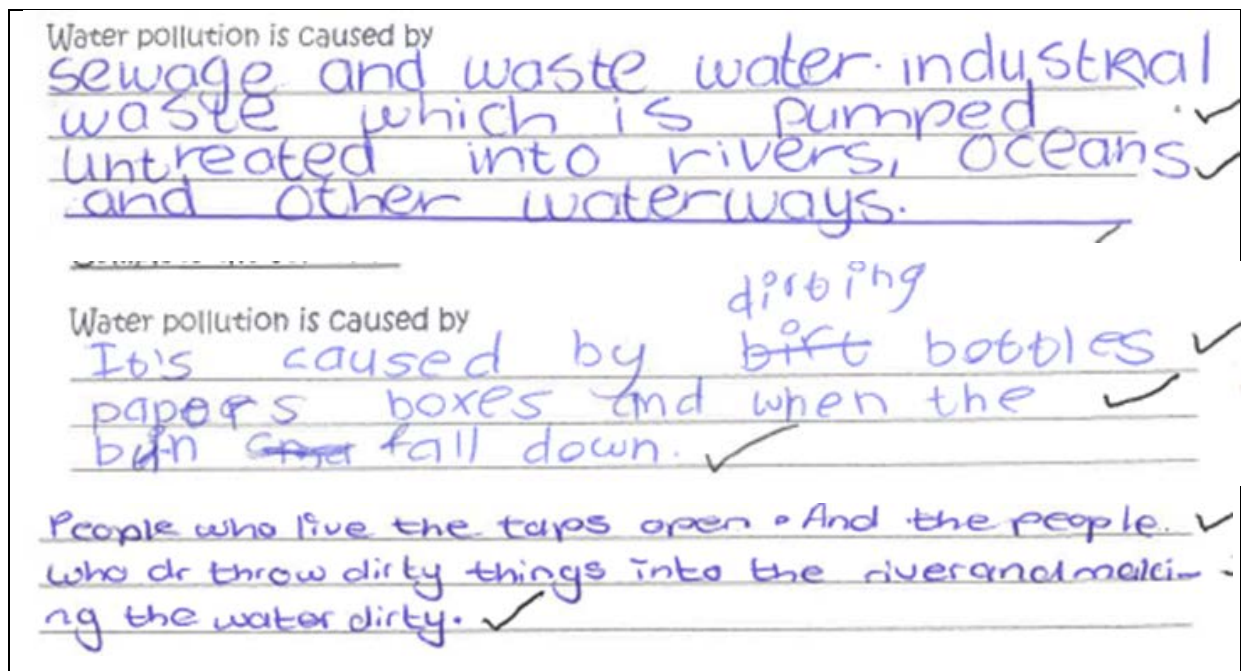 Water pollution is caused by
sewage and waste water. industrial
waste which is pumped
untreated into rivers, oceans
and other waterways.
Water pollution is caused by
dirting
It's caused by bift bottles
papers boxes and when the
bin fall down.
People who live the taps open. And the people
who dr throw dirty things into the river and maki-
ng the water dirty.